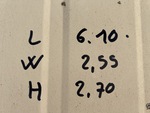 L 6.10.
W 2,55
H 2,70